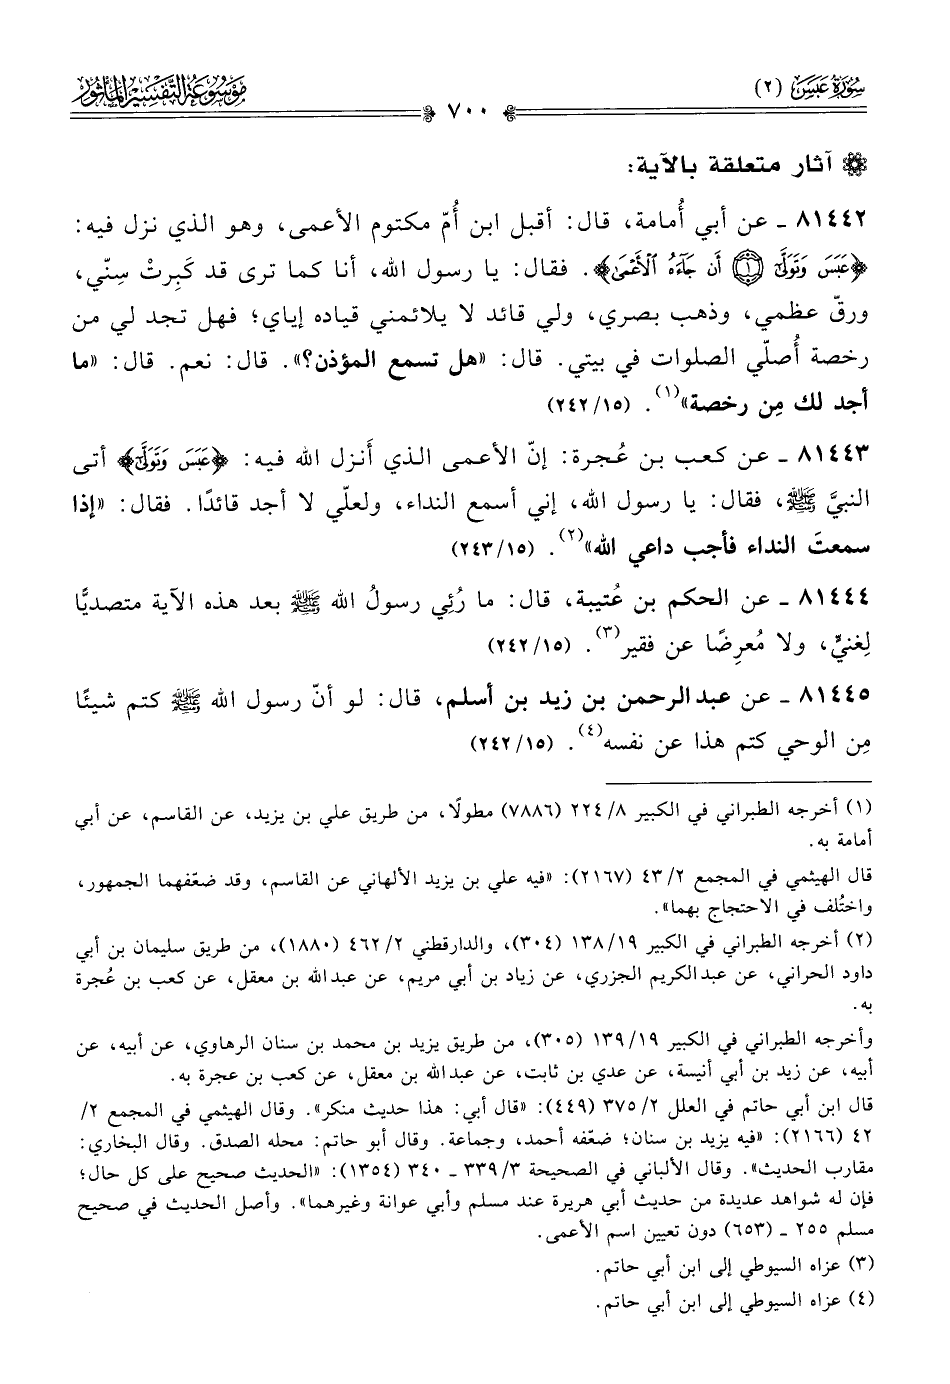 سُورَةُ عَبَسَ (٢)
موسوعة التفسير المأثور
٧٠٠
آثار متعلقة بالآية:
٨١٤٤٢ ـ عن أبي أُمامة، قال: أقبل ابن أُمّ مكتوم الأعمى، وهو الذي نزل فيه:
﴿عَبَسَ وَتَوَلَّىٰٓ ۝١ أَن جَآءَهُ ٱلْأَعْمَىٰ﴾. فقال: يا رسول الله، أنا كما ترى قد كَبِرتْ سِنّي،
ورقّ عظمي، وذهب بصري، ولي قائد لا يلائمني قياده إياي؛ فهل تجد لي من
رخصة أُصلّي الصلوات في بيتي. قال: «هل تسمع المؤذن؟». قال: نعم. قال: «ما
أجد لك مِن رخصة»(١). (١٥/٢٤٢)
٨١٤٤٣ ـ عن كعب بن عُجرة: إنّ الأعمى الذي أَنزل الله فيه: ﴿عَبَسَ وَتَوَلَّىٰٓ﴾ أتى
النبيَّ ﷺ، فقال: يا رسول الله، إني أسمع النداء، ولعلّي لا أجد قائدًا. فقال: «إذا
سمعتَ النداء فأجب داعي الله»(٢). (١٥/٢٤٣)
٨١٤٤٤ ـ عن الحكم بن عُتيبة، قال: ما رُئِي رسولُ الله ﷺ بعد هذه الآية متصديًّا
لِغنيٍّ، ولا مُعرِضًا عن فقير(٣). (١٥/٢٤٢)
٨١٤٤٥ ـ عن عبدالرحمن بن زيد بن أسلم، قال: لو أنّ رسول الله ﷺ كتم شيئًا
مِن الوحي كتم هذا عن نفسه(٤). (١٥/٢٤٢)
(١) أخرجه الطبراني في الكبير ٨/ ٢٢٤ (٧٨٨٦) مطولًا، من طريق علي بن يزيد، عن القاسم، عن أبي
أمامة به.
قال الهيثمي في المجمع ٢/ ٤٣ (٢١٦٧): «فيه علي بن يزيد الألهاني عن القاسم، وقد ضعّفهما الجمهور،
واختُلف في الاحتجاج بهما».
(٢) أخرجه الطبراني في الكبير ١٩/ ١٣٨ (٣٠٤)، والدارقطني ٢/ ٤٦٢ (١٨٨٠)، من طريق سليمان بن أبي
داود الحراني، عن عبدالكريم الجزري، عن زياد بن أبي مريم، عن عبدالله بن معقل، عن كعب بن عُجرة
به.
وأخرجه الطبراني في الكبير ١٩/ ١٣٩ (٣٠٥)، من طريق يزيد بن محمد بن سنان الرهاوي، عن أبيه، عن
أبيه، عن زيد بن أبي أنيسة، عن عدي بن ثابت، عن عبدالله بن معقل، عن كعب بن عجرة به.
قال ابن أبي حاتم في العلل ٢/ ٣٧٥ (٤٤٩): «قال أبي: هذا حديث منكر». وقال الهيثمي في المجمع ٢/
٤٢ (٢١٦٦): «فيه يزيد بن سنان؛ ضعّفه أحمد، وجماعة. وقال أبو حاتم: محله الصدق. وقال البخاري:
مقارب الحديث». وقال الألباني في الصحيحة ٣/ ٣٣٩ ـ ٣٤٠ (١٣٥٤): «الحديث صحيح على كل حال؛
فإن له شواهد عديدة من حديث أبي هريرة عند مسلم وأبي عوانة وغيرهما». وأصل الحديث في صحيح
مسلم ٢٥٥ ـ (٦٥٣) دون تعيين اسم الأعمى.
(٣) عزاه السيوطي إلى ابن أبي حاتم.
(٤) عزاه السيوطي إلى ابن أبي حاتم.